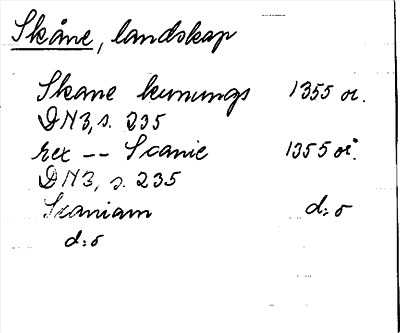 Skåne, landskap
Skane kunungs 1355 or.
DN3, s. 235
rex -- Scanie 1355 or.
DN3, s. 235
Scaniam d:o
d:o